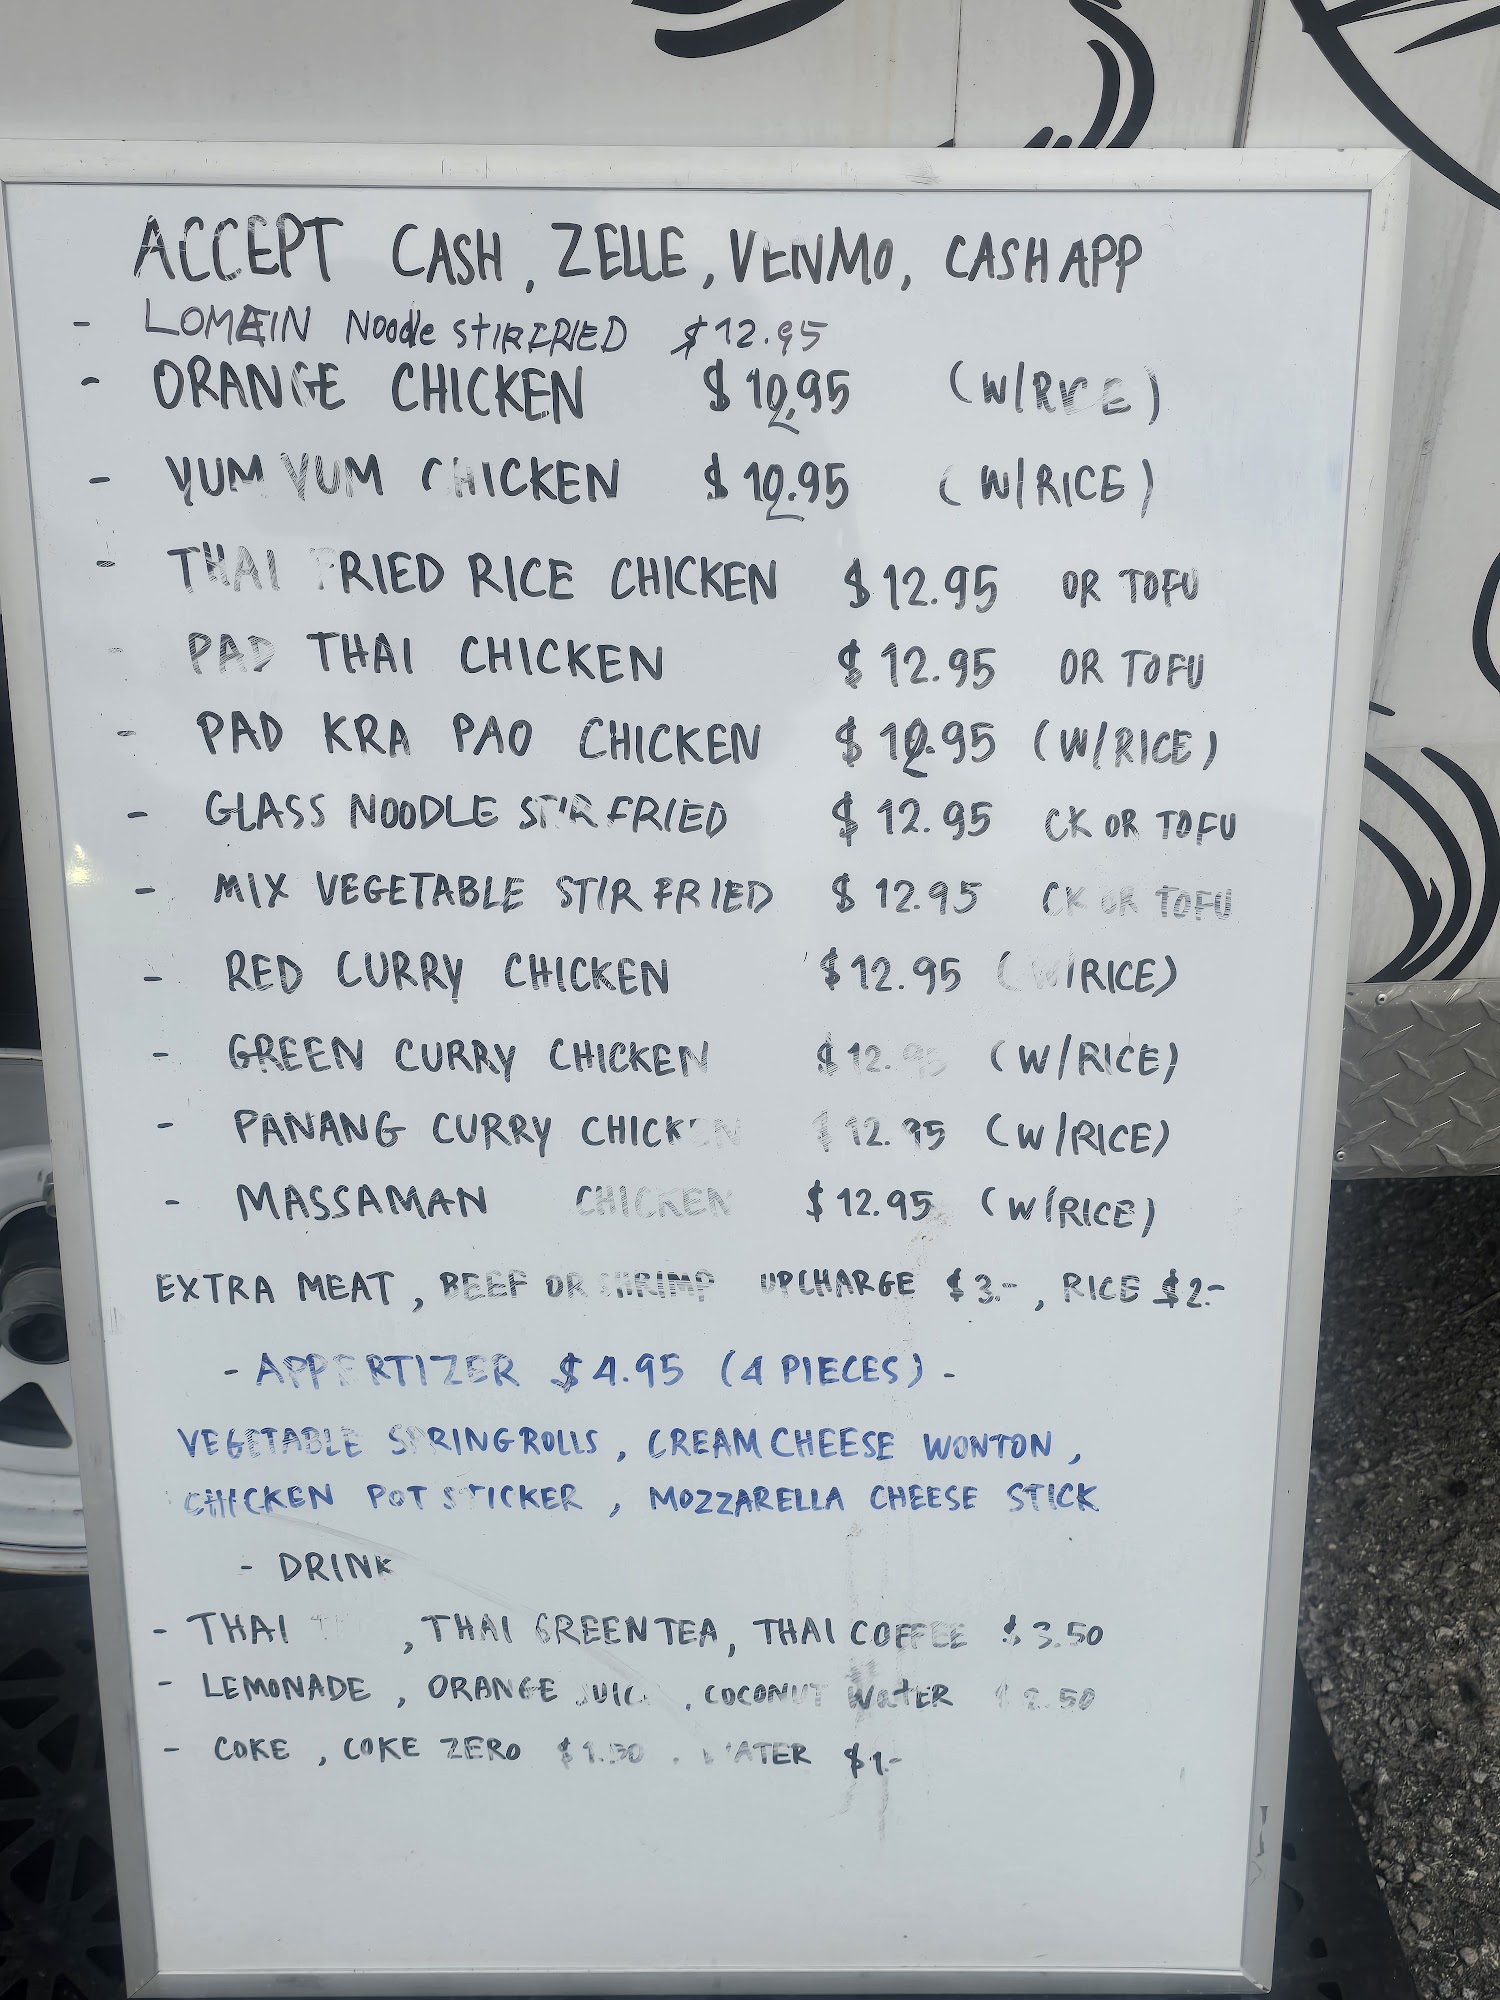 ACCEPT CASH, ZELLE, VENMO, CASHAPP
- LOMEIN Noodle StIRFRIED $12.95
- ORANGE CHICKEN $12.95 (W/RICE)
- YUM YUM CHICKEN $12.95 (W/RICE)
- THAI FRIED RICE CHICKEN $12.95 OR TOFU
- PAD THAI CHICKEN $12.95 OR TOFU
- PAD KRA PAO CHICKEN $12.95 (W/RICE)
- GLASS NOODLE STIR FRIED $12.95 CK OR TOFU
- MIX VEGETABLE STIR FRIED $12.95 CK OR TOFU
- RED CURRY CHICKEN $12.95 (W/RICE)
- GREEN CURRY CHICKEN $12.95 (W/RICE)
- PANANG CURRY CHICKEN $12.95 (W/RICE)
- MASSAMAN CHICKEN $12.95 (W/RICE)
EXTRA MEAT, BEEF OR SHRIMP UPCHARGE $3.-, RICE $2.-
- APPERTIZER $4.95 (4 PIECES) -
VEGETABLE SPRINGROLLS, CREAM CHEESE WONTON,
CHICKEN POT STICKER, MOZZARELLA CHEESE STICK
- DRINK
- THAI , THAI GREEN TEA, THAI COFFEE $3.50
- LEMONADE, ORANGE JUICE, COCONUT WATER $2.50
- COKE, COKE ZERO $1.50, WATER $1.-